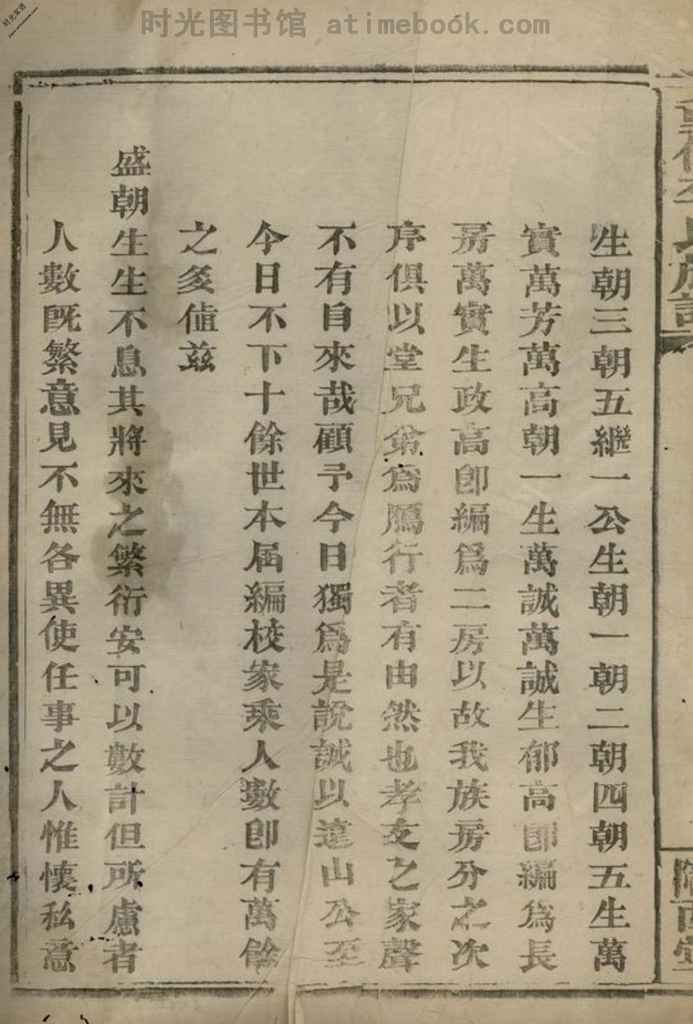 时光图书馆 atimebook.com
时光文理
李氏族譜
隴西堂
生朝三朝五繼一公生朝一朝二朝四朝五生萬
實萬芳萬高朝一生萬誠萬誠生郁高卽編爲長
房萬實生政高卽編爲二房以故我族房分之次
序俱以堂兄弟爲鴈行者有由然也孝友之家聲
不有自來哉顧予今日獨爲是說誠以遠山公至
今日不下十餘世本届編校家乘人數卽有萬餘
之多値兹
盛朝生生不息其將來之繁衍安可以數計但所慮者
人數既繁意見不無各異使任事之人惟懷私意